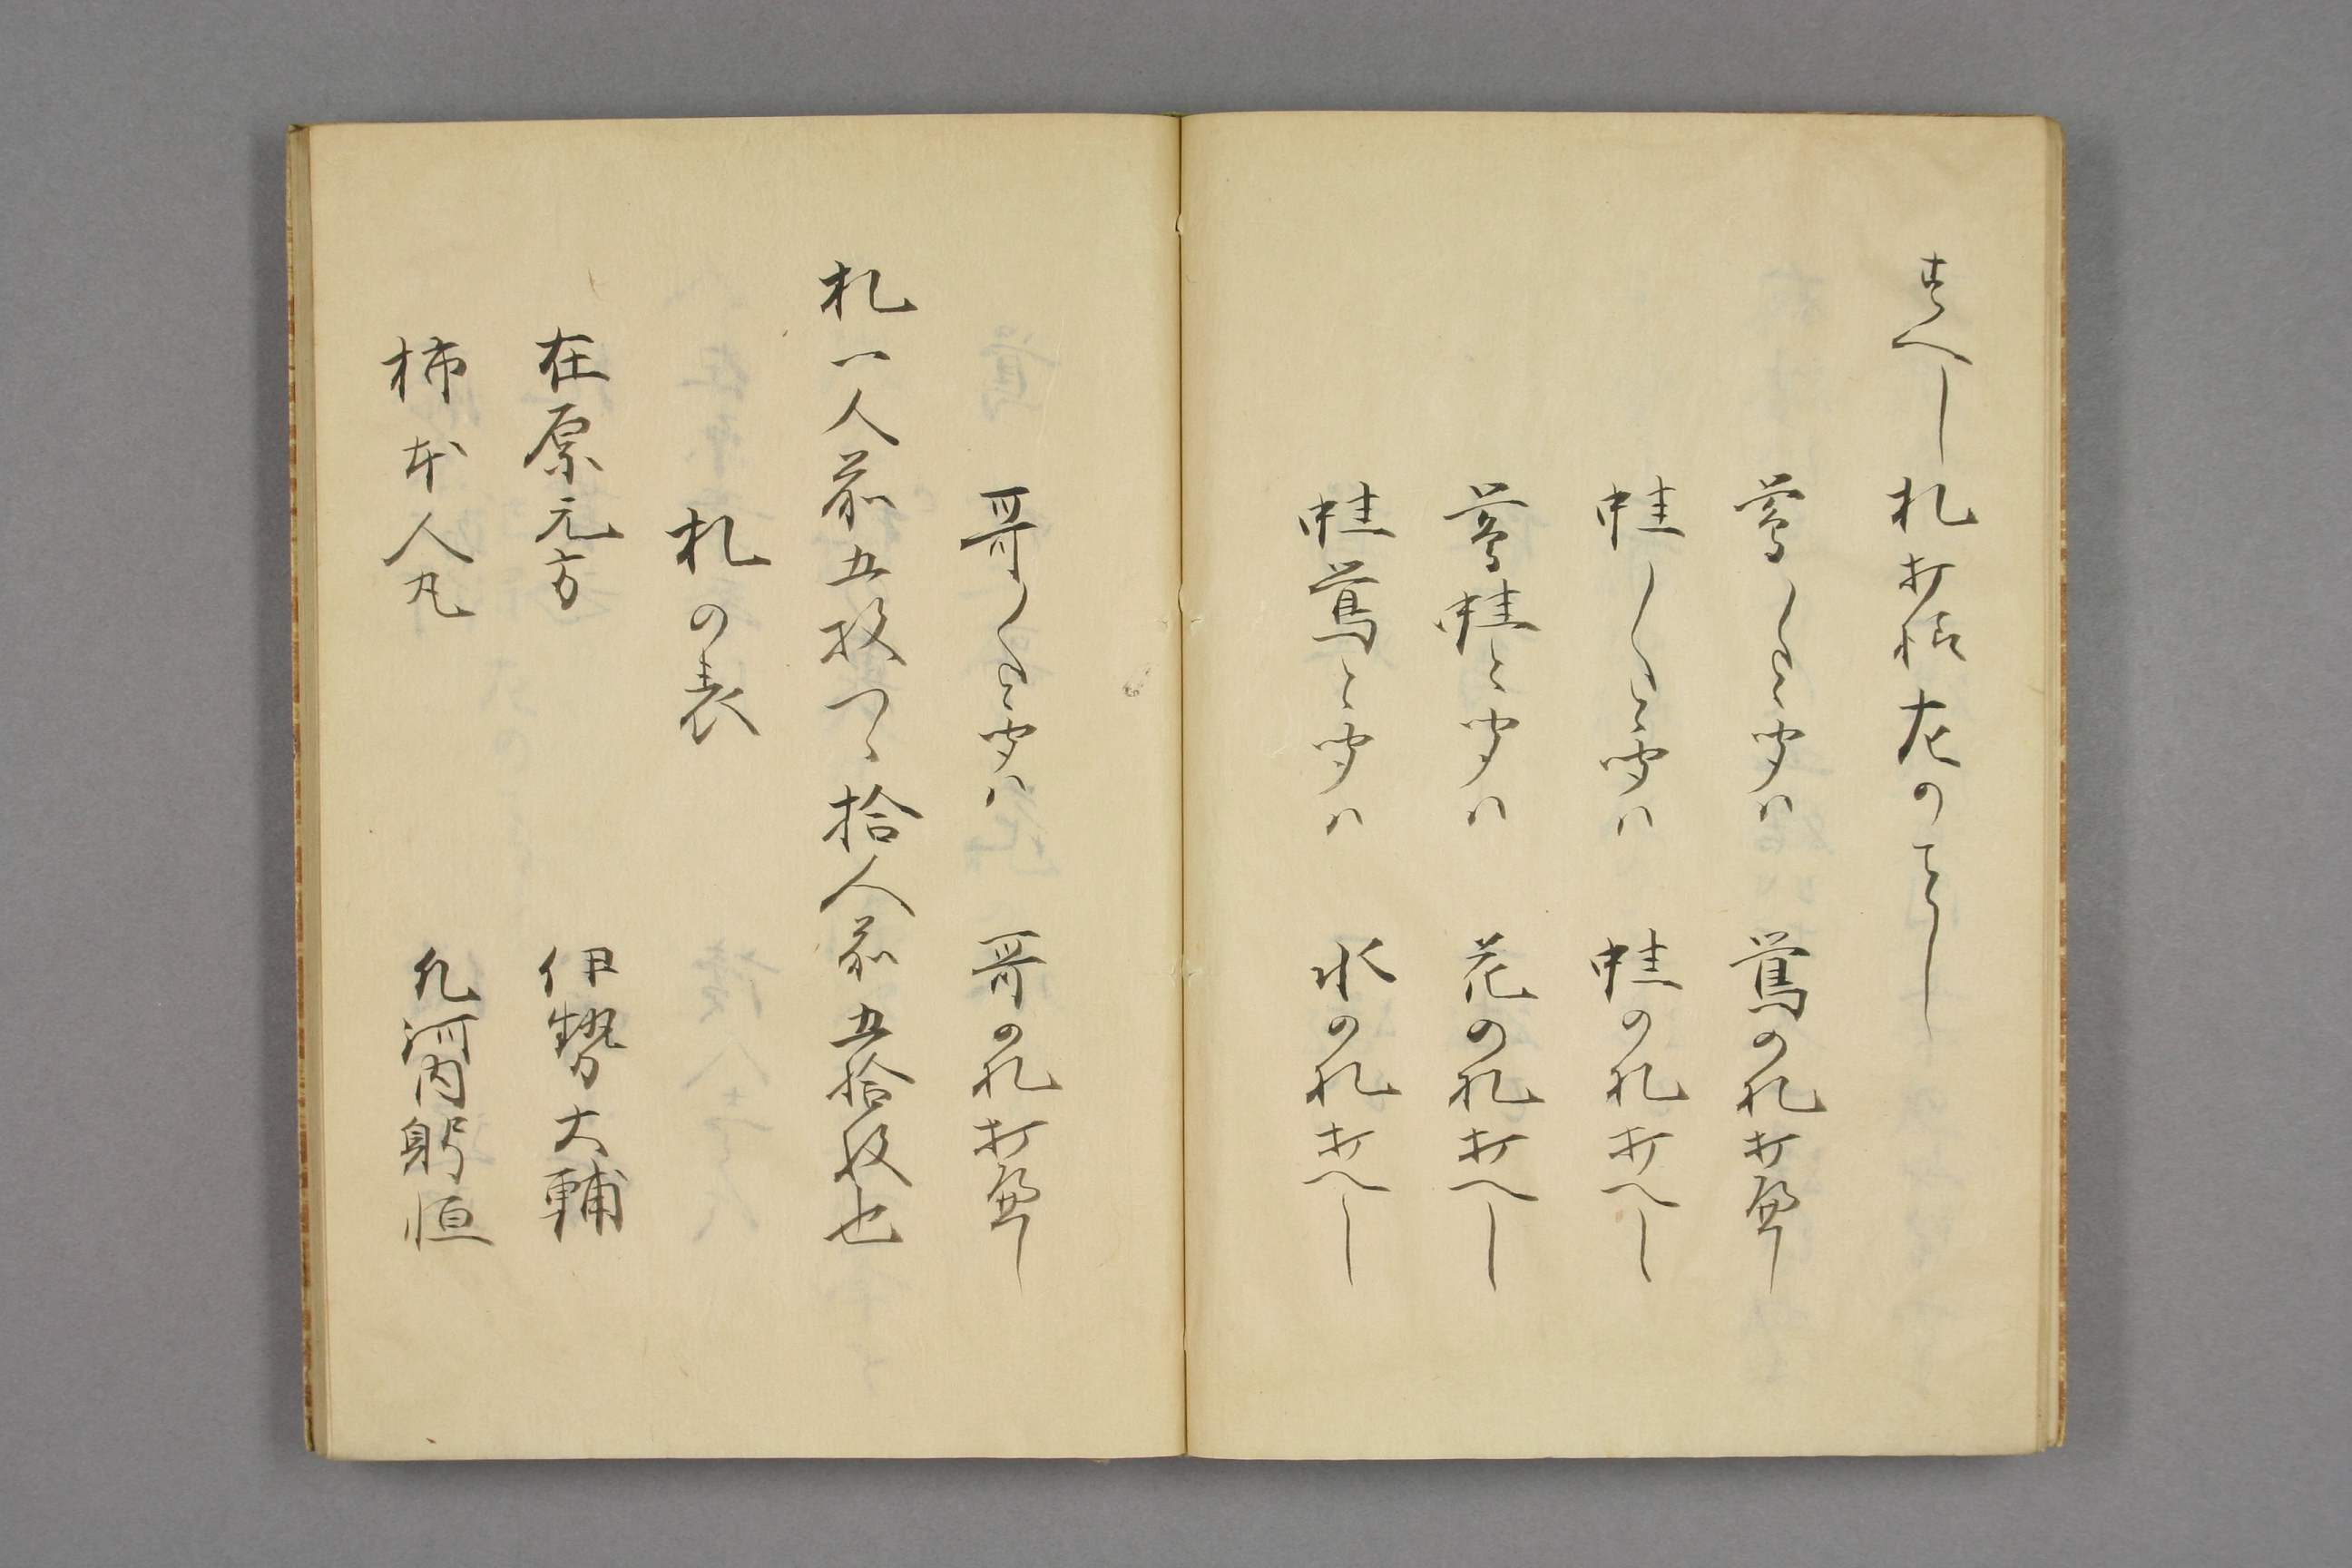 すへし札打様左のことし
鶯〳〵と聞ハ 鶯の札打へし
蛙〳〵と聞ハ 蛙の札打へし
鶯蛙と聞ハ 花の札打へし
蛙鶯と聞ハ 水の札打へし
哥〳〵と聞ハ 哥の札打へし
札一人前五枚つゝ拾人前五拾枚也
札の表
在原元方 伊勢大輔
柿本人丸 凡河内躬恒